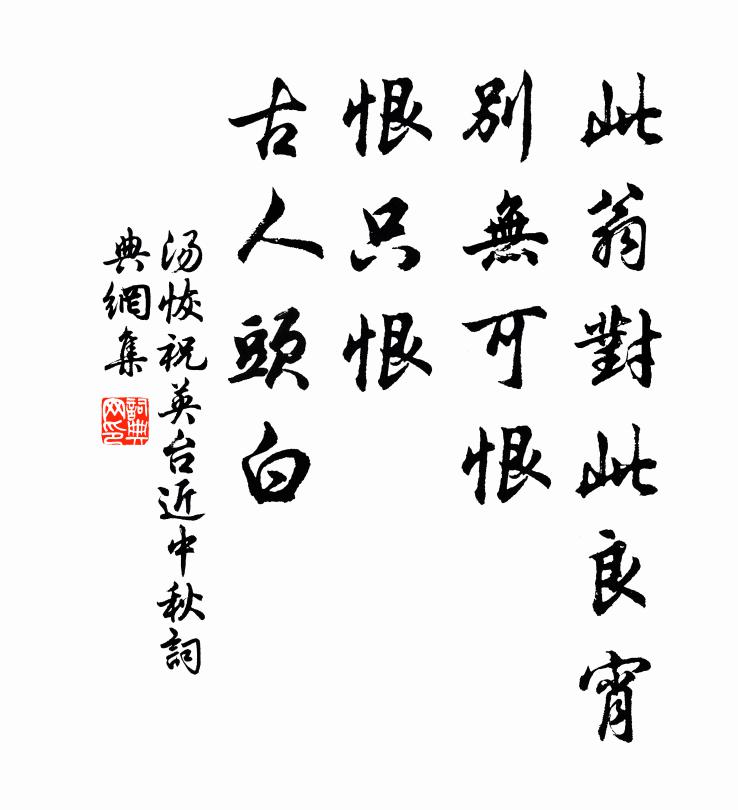 此翁對此良宵
別無可恨
恨只恨
古人頭白
汤恢祝英台近中秋詞
典網集
詞典網印